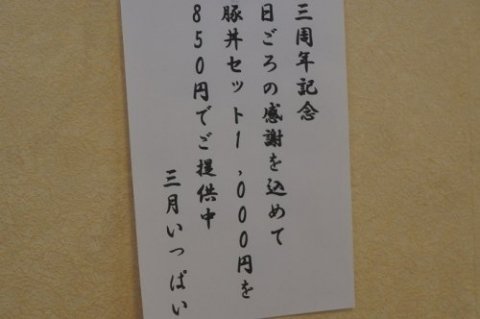 三周年記念
日ごろの感謝を込めて
豚丼セット1,000円を
850円でご提供中
三月いっぱい